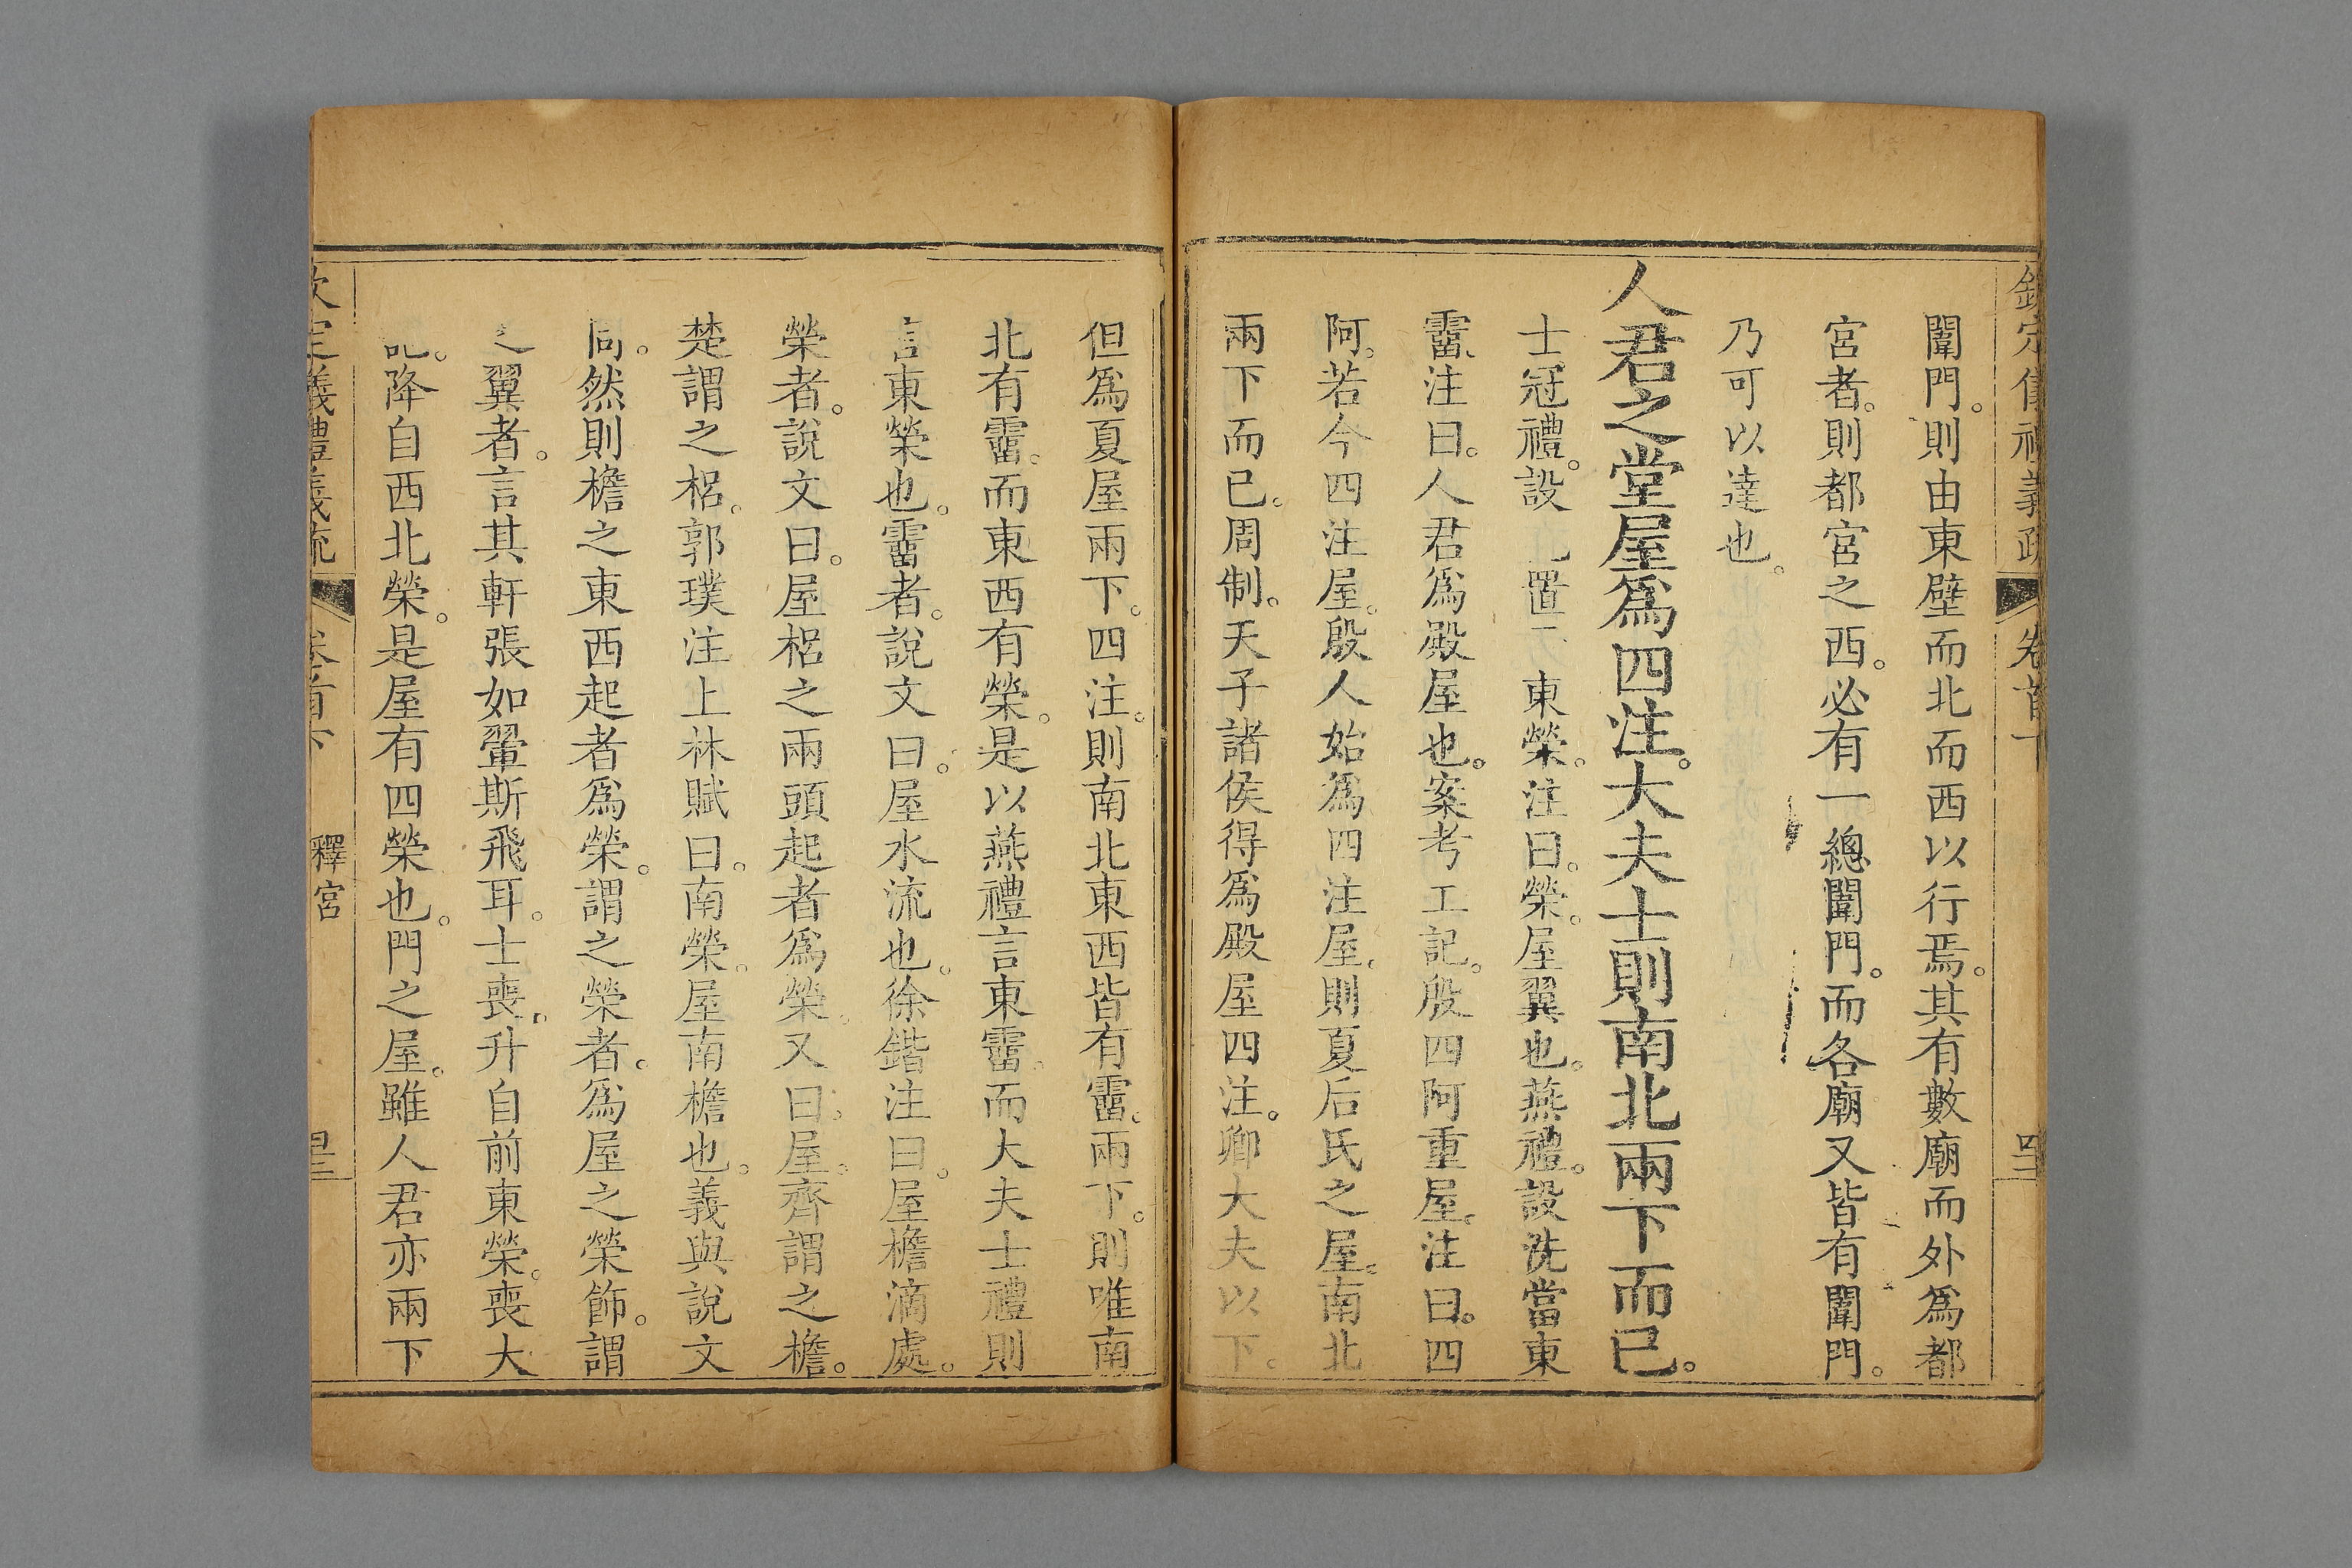 欽定儀禮義疏 卷首下 四二
闈門。則由東壁而北而西以行焉。其有數廟而外爲都
宮者。則都宮之西。必有一總闈門。而各廟又皆有闈門。
乃可以達也。
人君之堂屋爲四注。大夫士則南北兩下而已。
士冠禮。設 置 東榮。注曰。榮。屋翼也。燕禮。設洗當東
霤。注曰。人君爲殿屋也。案考工記。殷四阿重屋。注曰。四
阿。若今四注屋。殷人始爲四注屋。則夏后氏之屋。南北
兩下而已。周制。天子諸侯得爲殿屋四注。卿大夫以下。
但爲夏屋兩下。四注。則南北東西皆有霤。兩下。則唯南
北有霤。而東西有榮。是以燕禮言東霤。而大夫士禮則
言東榮也。霤者。說文曰。屋水流也。徐鍇注曰。屋檐滴處。
榮者。說文曰。屋梠之兩頭起者爲榮。又曰。屋。齊謂之檐。
楚謂之梠。郭璞注上林賦曰。南榮。屋南檐也。義與說文
同。然則檐之東西起者爲榮。謂之榮者。爲屋之榮飾。謂
之翼者。言其軒張如翬斯飛耳。士喪。升自前東榮。喪大
記。降自西北榮。是屋有四榮也。門之屋。雖人君亦兩下
欽定儀禮義疏 卷首下 釋宮 四二